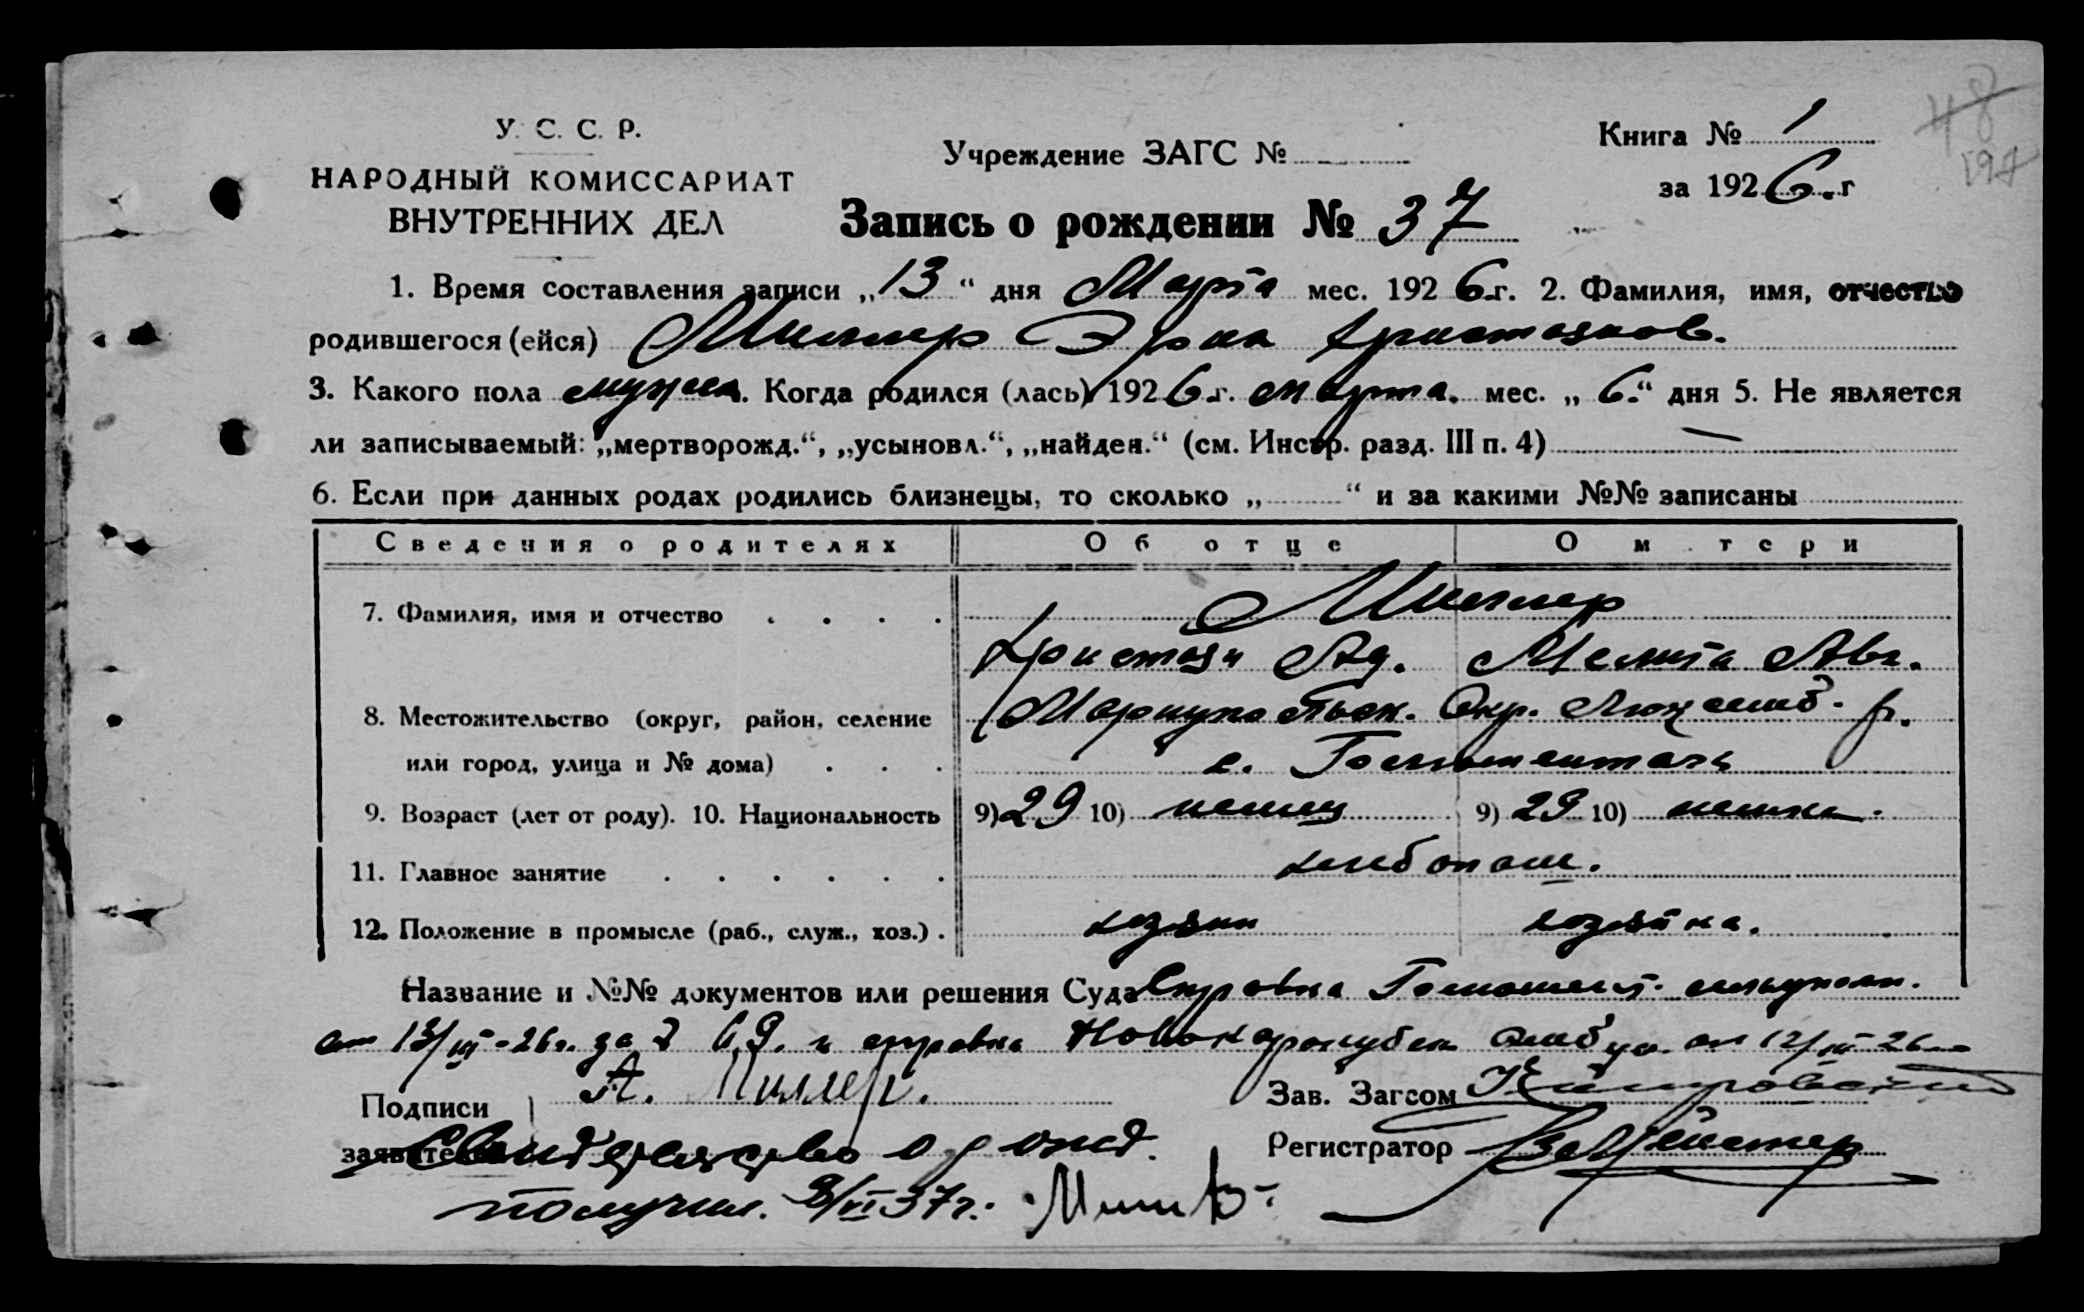 У. С. С. Р.
НАРОДНЫЙ КОМИССАРИАТ
ВНУТРЕННИХ ДЕЛ
Учреждение ЗАГС №
Книга № 1
за 1926.г
48
197
Запись о рождении № 37
1. Время составления записи „13“ дня Марта мес. 1926.г. 2. Фамилия, имя, отчество
родившегося (ейся) Миллер Эрна Христианов.
3. Какого пола мужск. Когда родился (лась) 1926.г. марта. мес. „6.“ дня 5. Не является
ли записываемый: „мертворожд.“, „усыновл.“, „найден.“ (см. Инстр. разд. III п. 4) —
6. Если при данных родах родились близнецы, то сколько „ “ и за какими №№ записаны
Сведения о родителях Об отце О м тери
7. Фамилия, имя и отчество Миллер
Христиан Ад. Мелита Авг.
8. Местожительство (округ, район, селение Мариупольск. Окр. Люксемб. р.
или город, улица и № дома) с.
9. Возраст (лет от роду). 10. Национальность 9) 29 10) немец 9) 29 10) немка.
11. Главное занятие хлебопаш.
12. Положение в промысле (раб., служ., хоз.) хозяин хозяйка.
Название и №№ документов или решения Суда Справка
от 13/III-26г. за № 69. и справка от 12/III 26г.
Подписи А. Миллер.
Зав. Загсом
заявите Свидетельство о рожд.
Регистратор
получил. 8/VI 37г.